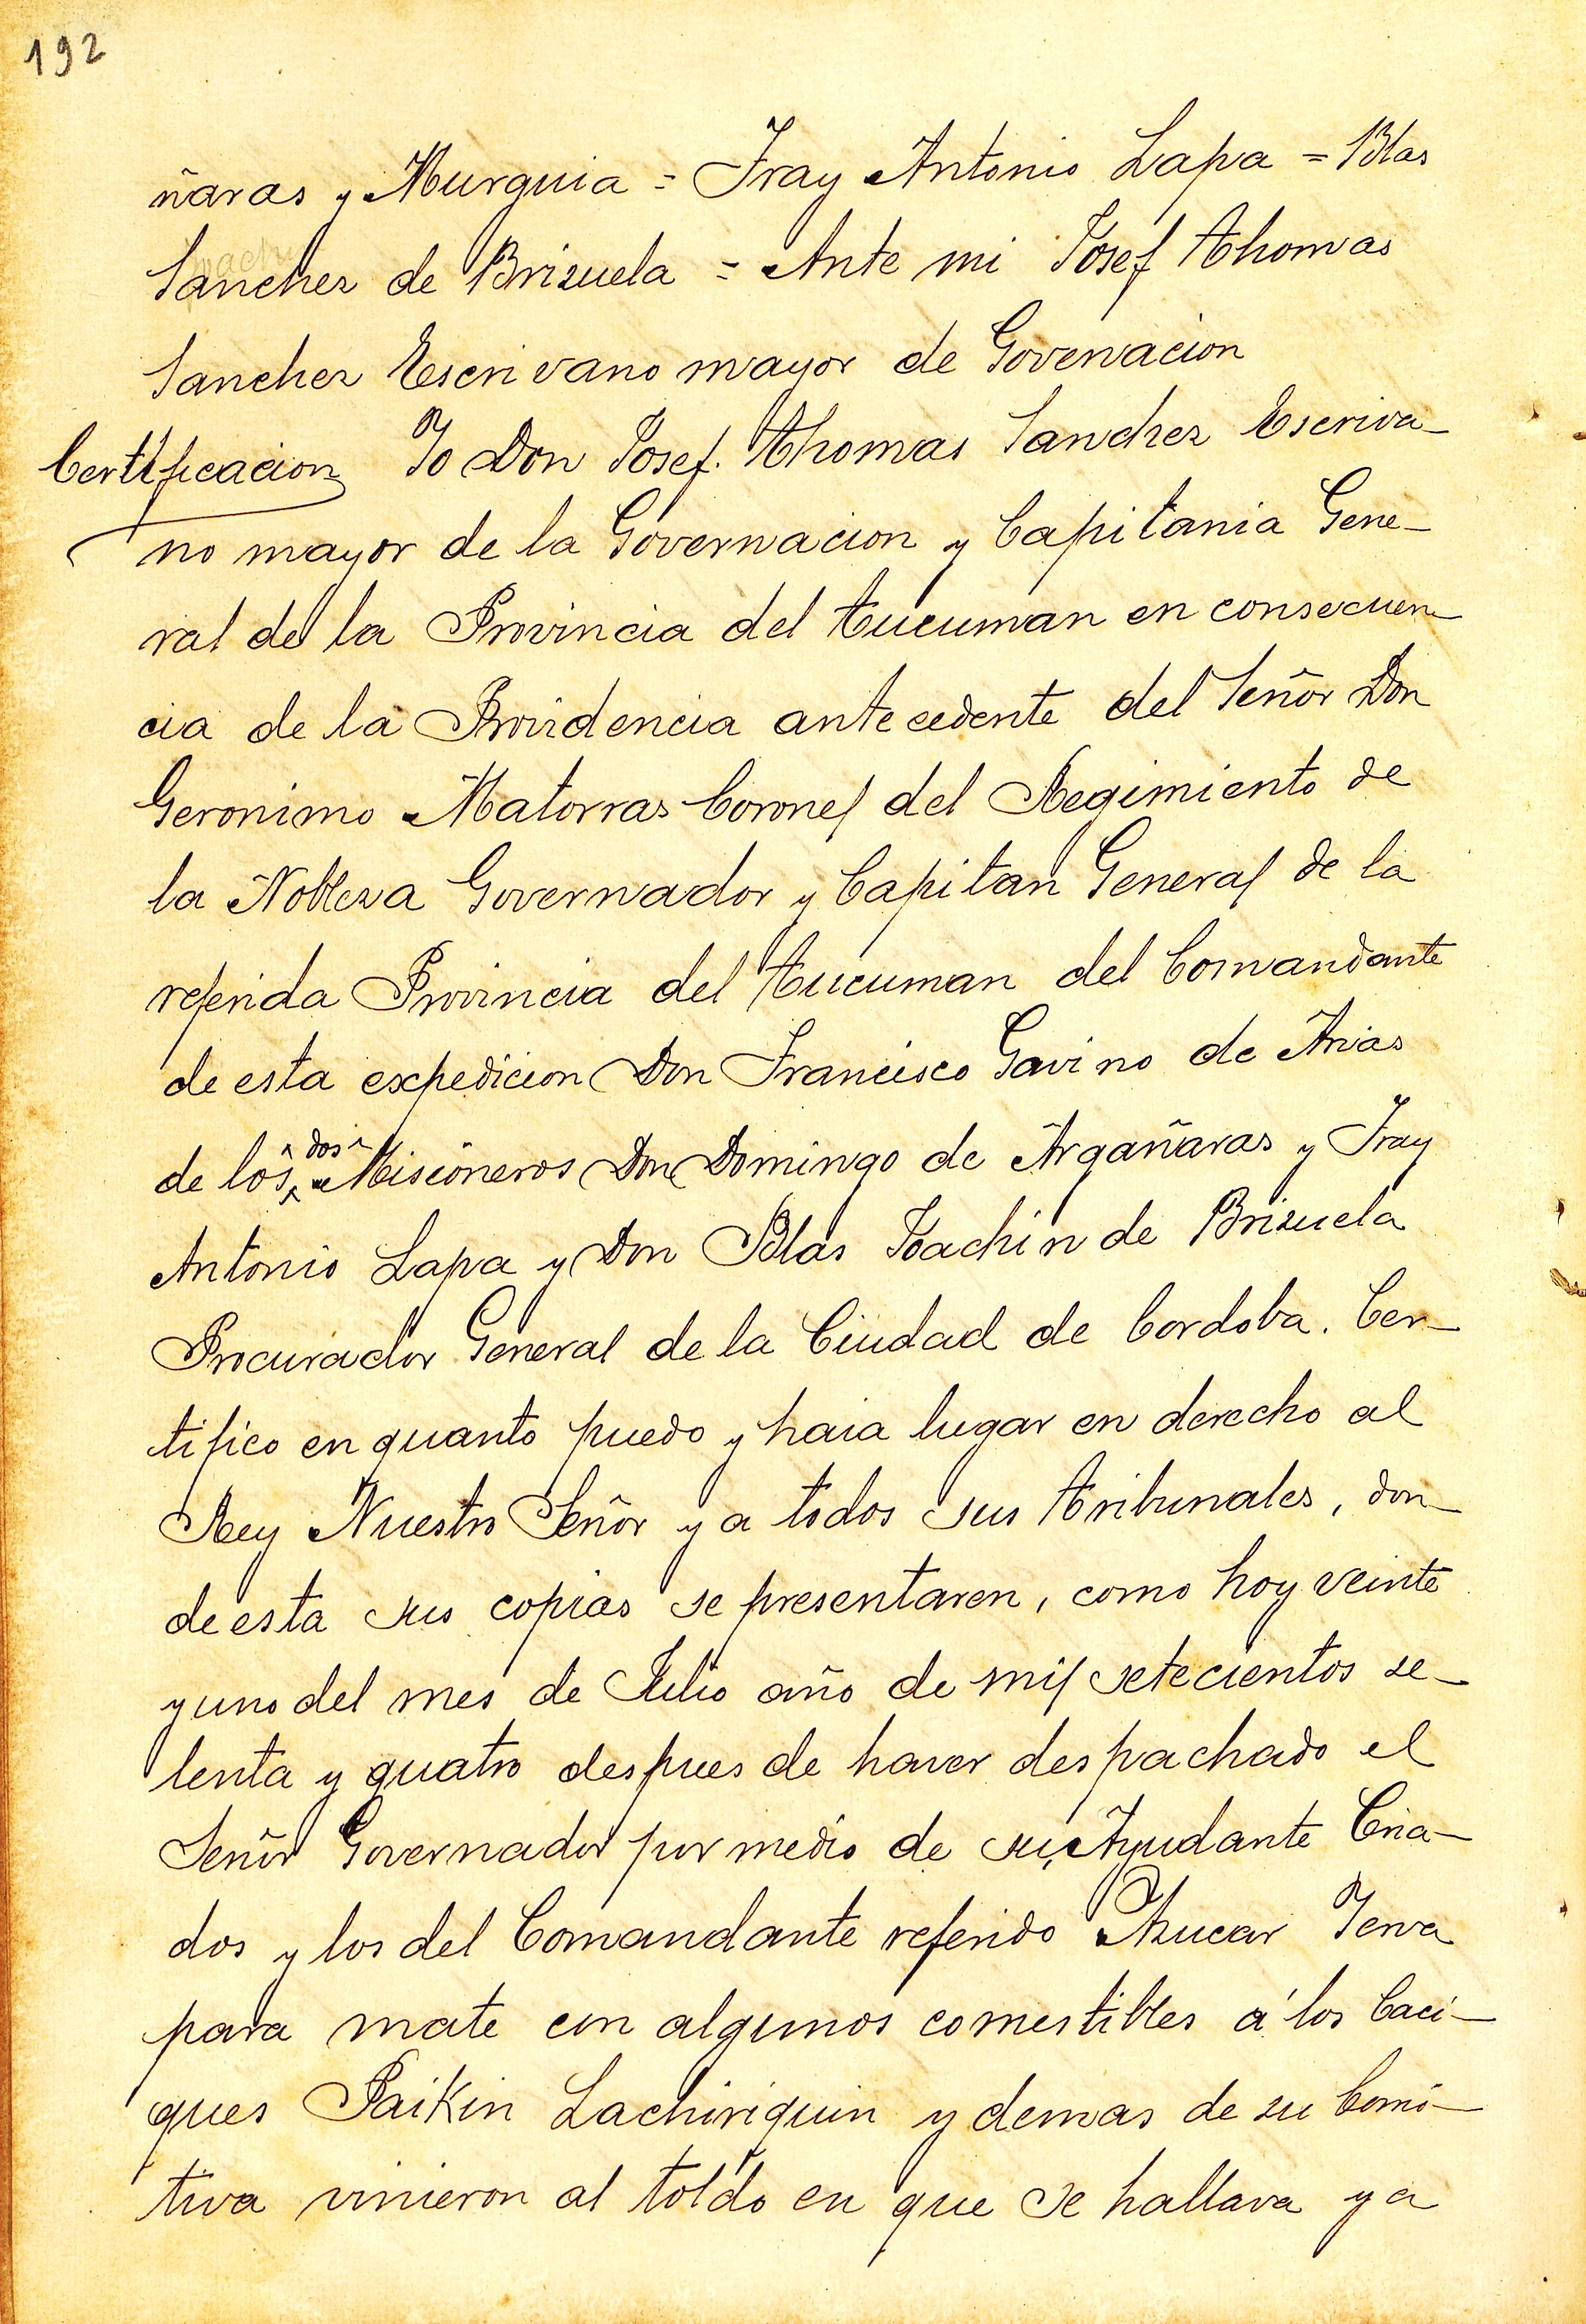 192
ñaras y Murguia = Fray Antonio Lapa = Blas
Sanchez de Brizuela = Ante mi Josef Thomas
Sanchez Escrivano mayor de Governacion
Certificacion Yo Don Josef. Thomas Sanchez Escriva-
no mayor de la Governacion y Capitania Gene-
ral de la Provincia del Tucuman en consecuen-
cia de la Providencia antecedente del Señor Don
Geronimo Matorras Coronel del Regimiento de
la Nobleza Governador y Capitan General de la
referida Provincia del Tucuman del Comandante
de esta expedicion Don Francisco Gavino de Arias
de los dos Misioneros Don Domingo de Argañaras y Fray
Antonio Lapa y Don Blas Joachin de Brizuela
Procurador General de la Ciudad de Cordoba. Cer-
tifico en quanto puedo y haia lugar en derecho al
Rey Nuestro Señor y a todos sus Tribunales, don-
de esta sus copias se presentaren, como hoy veinte
y uno del mes de Julio año de mil setecientos se-
tenta y quatro despues de haver despachado el
Señor Governador por medio de su Ayudante Cria-
dos y los del Comandante referido Azucar Yerva
para mate con algunos comestibles á los Caci-
ques Paikin Lachiriquin y demas de su Comi-
tiva vinieron al toldo en que se hallava ya